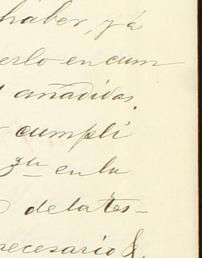 haber, y á
erlo en cum
añadidas.
cumpli
en la
de la tes-
necesario &.